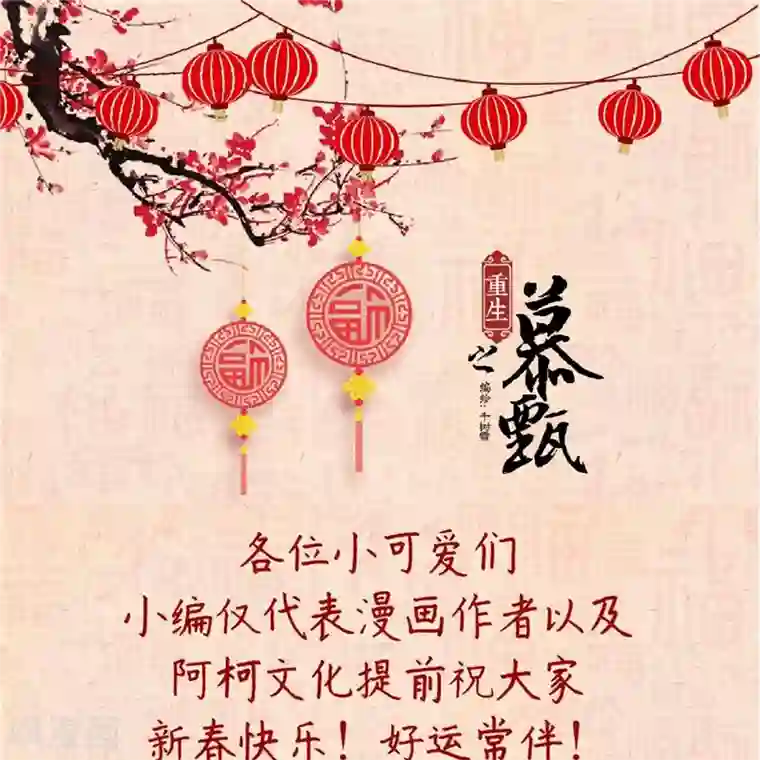 重生
之
慕甄
编绘:千树雪
各位小可爱们
小编仅代表漫画作者以及
阿柯文化提前祝大家
新春快乐！好运常伴！